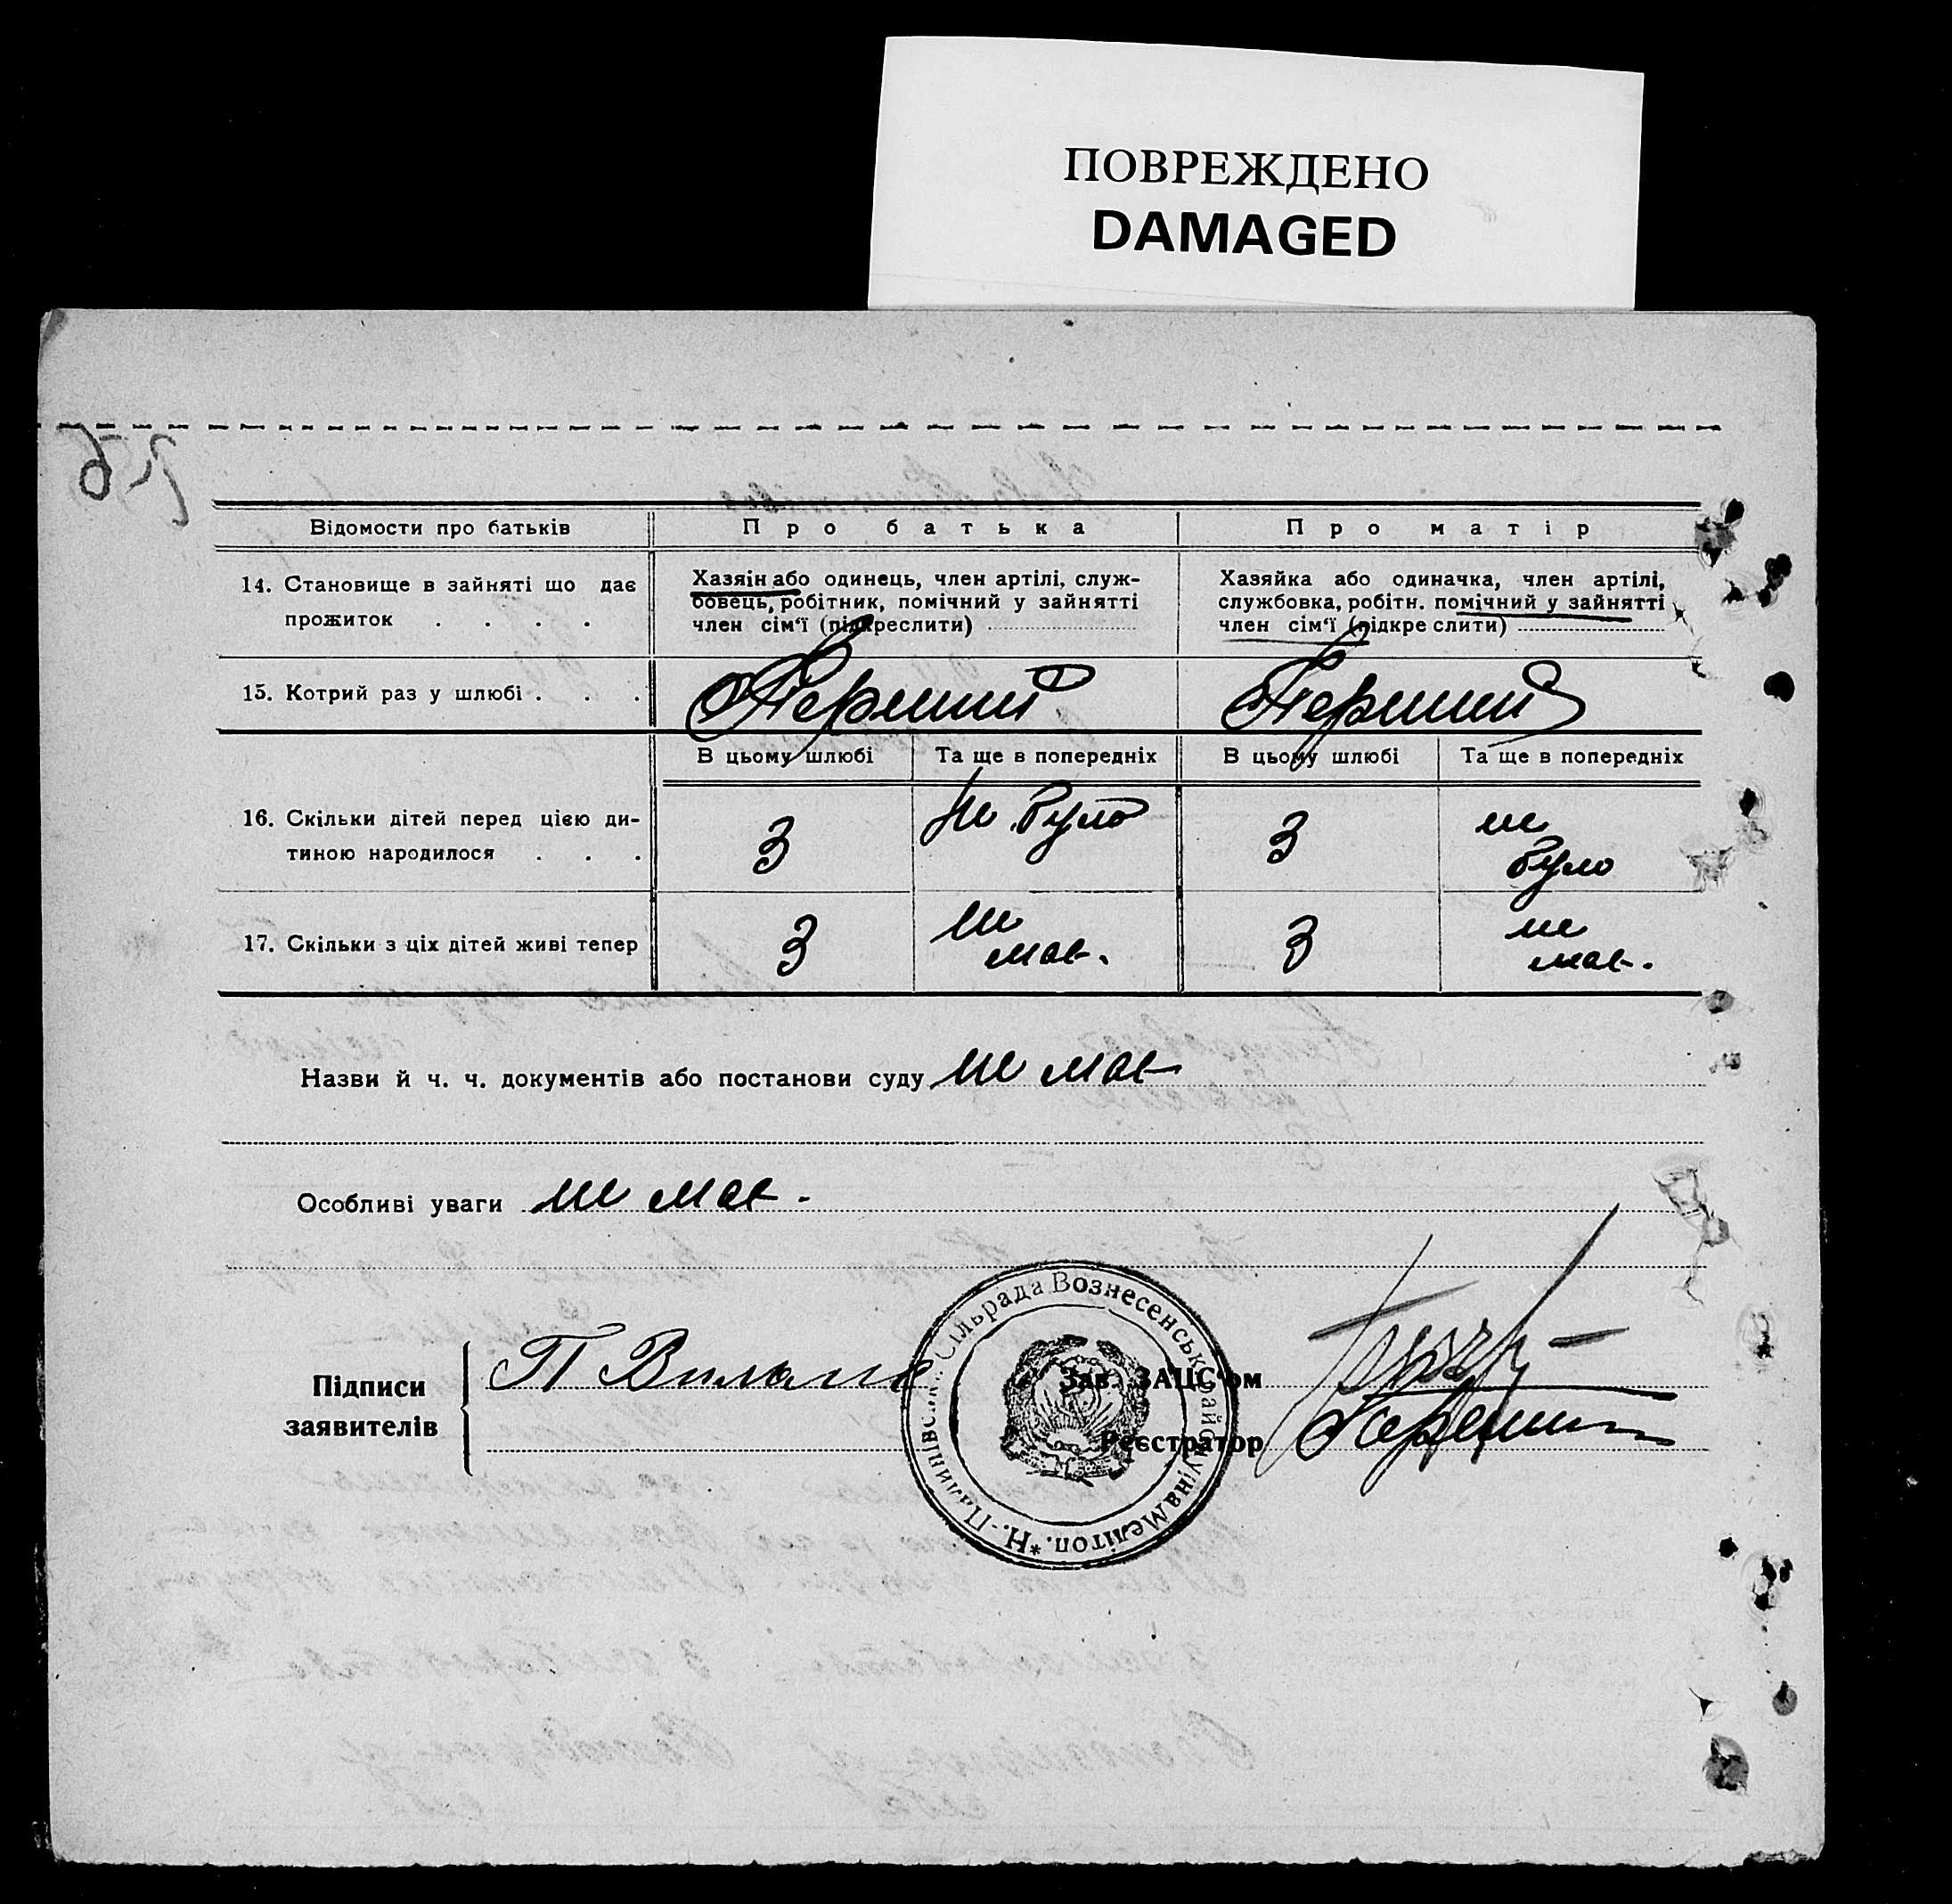 ПОВРЕЖДЕНО
DAMAGED
Відомости про батьків
Про батька
Про матір
14. Становище в зайняті що дає
прожиток . . . .
Хазяін або одинець, член артілі, служ-
бовець, робітник, помічний у зайнятті
член сім'ї (підкреслити)
Хазяйка або одиначка, член артілі,
службовка, робітн. помічний у зайнятті
член сім'ї (підкреслити)
15. Котрий раз у шлюбі . . .
Перший
Перший
В цьому шлюбі
Та ще в попередніх
В цьому шлюбі
Та ще в попередніх
16. Скільки дітей перед цією ди-
тиною народилося . . .
3
не було
3
не
було
17. Скільки з ціх дітей живі тепер
3
не
має.
3
не
має.
Назви й ч. ч. документів або постанови суду не має
Особливі уваги не має.
Підписи
заявителів
П
Зав. ЗАЦС'ом
Реєстратор
Сільрада Вознесенськ. району на Мелітоп. * Н.-Пилипівська